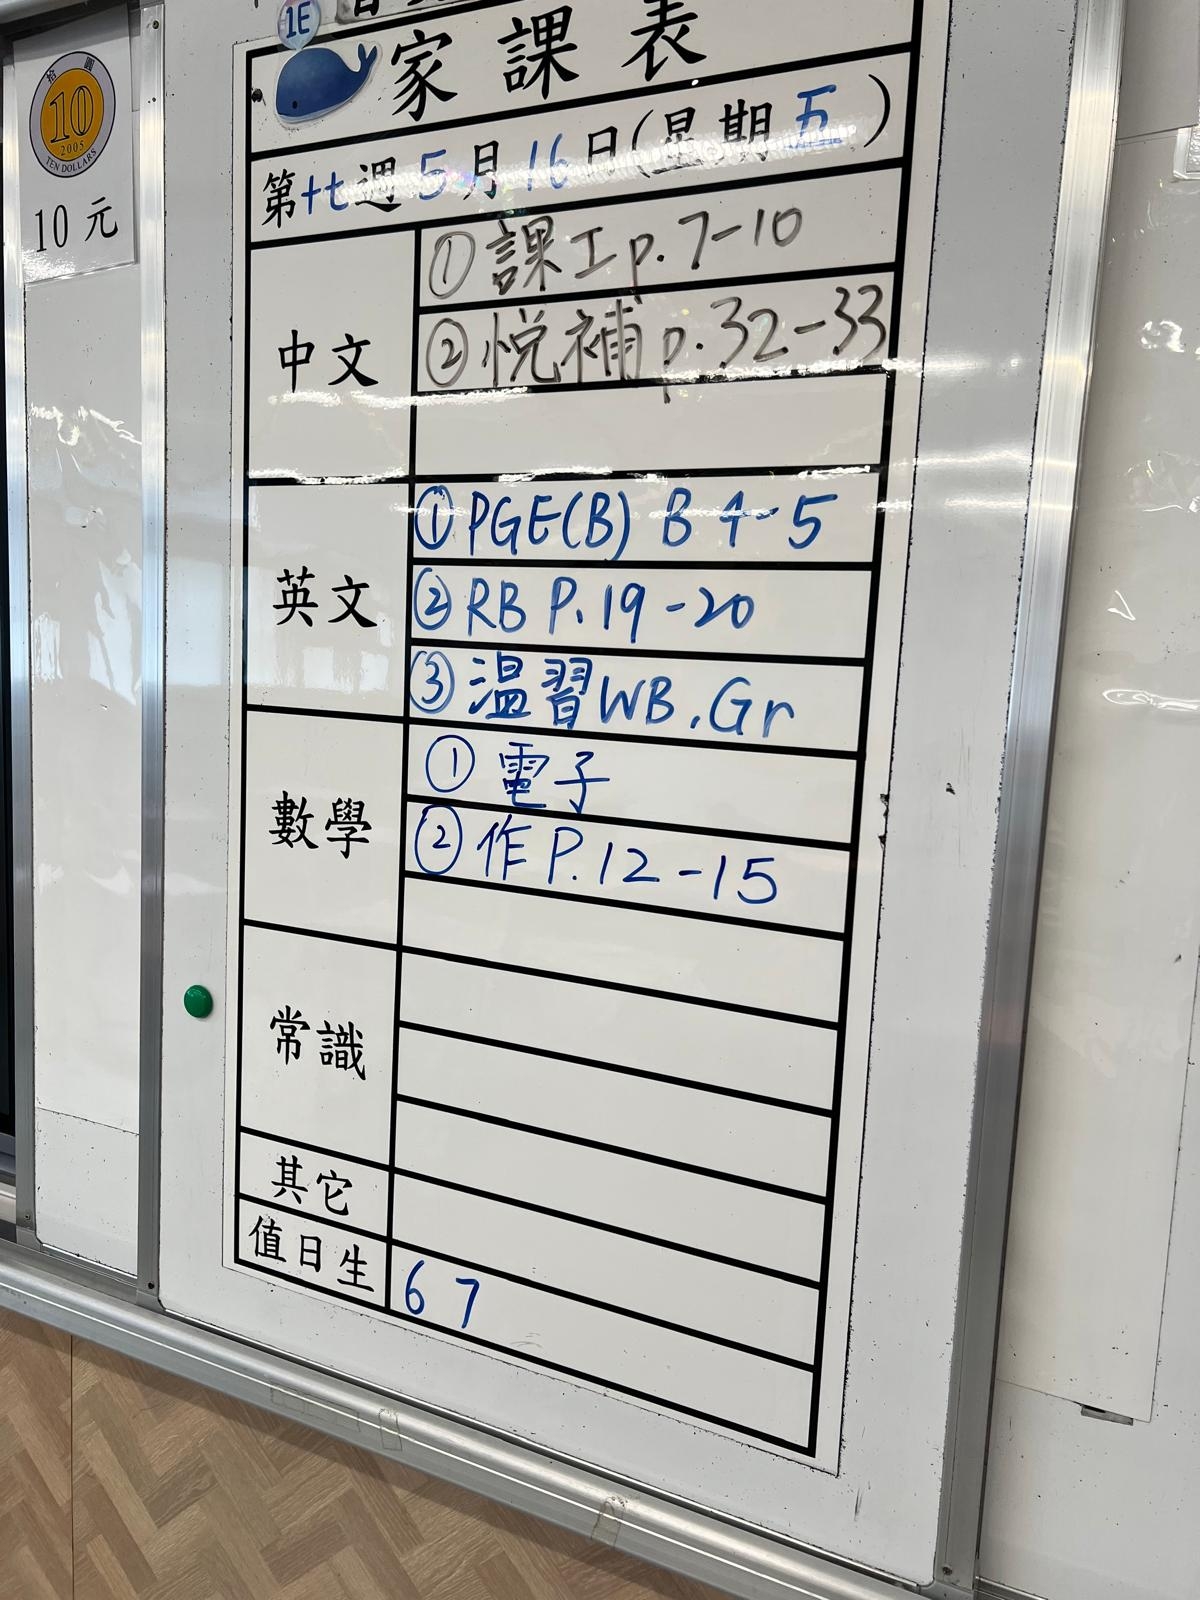 1E
家課表
第十七週5月16日(星期五)
拾圓
10
2005
TEN DOLLARS
10元
中文
①課工p.7-10
②悅補p.32-33
英文
①PGE(B) B 4-5
②RB P.19-20
③温習WB,Gr
數學
①電子
②作P.12-15
常識
其它
值日生
6 7